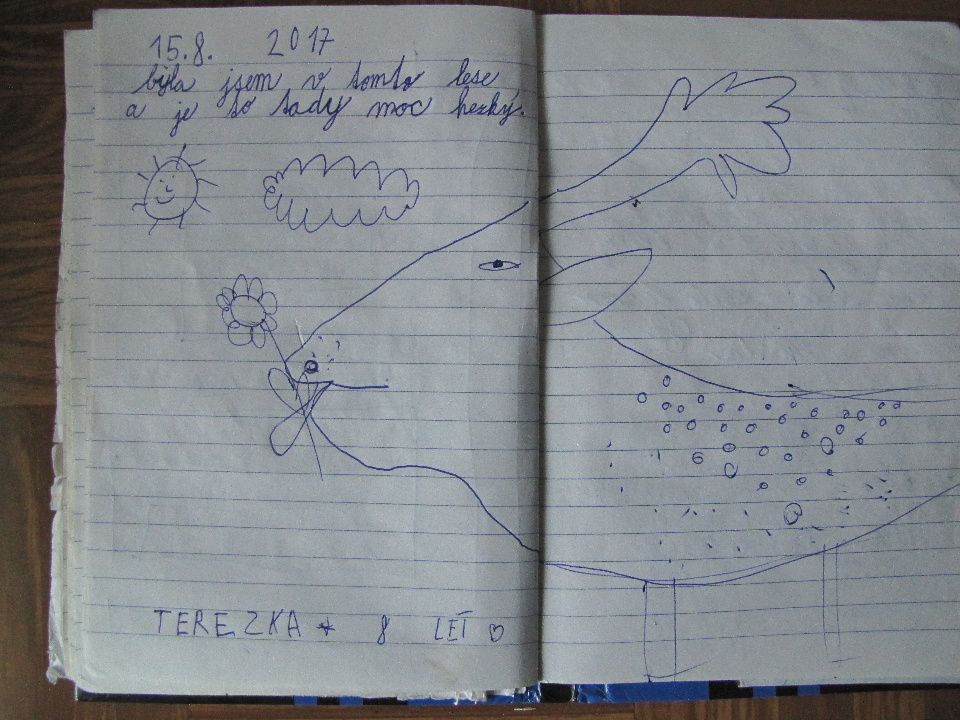 15.8. 2017
byla jsem v tomto lese
a je to tady moc hezký.
TEREZKA * 8 LET ♡